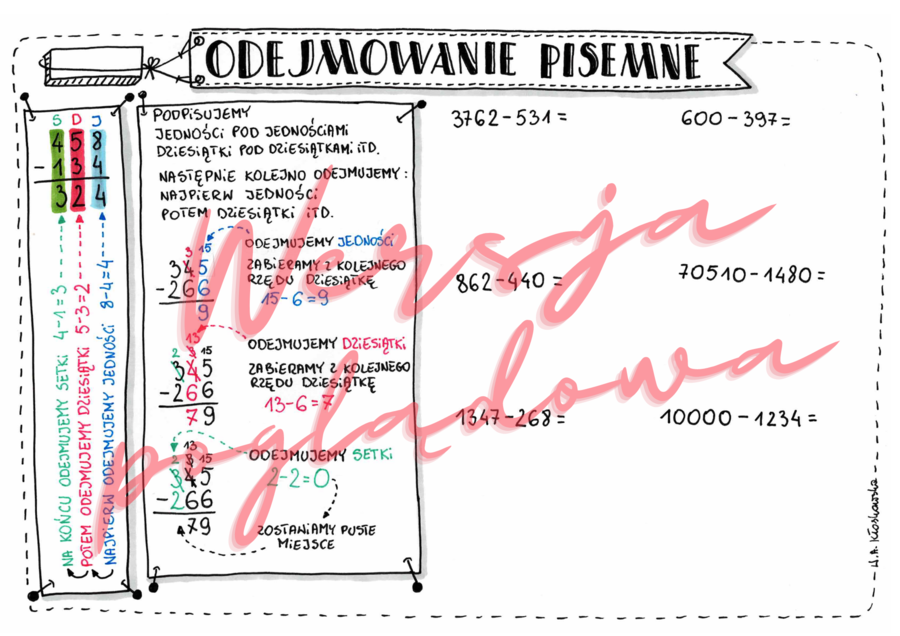 ODEJMOWANIE PISEMNE
S D J
458
-134
324
NA KOŃCU ODEJMUJEMY SETKI 4-1=3
POTEM ODEJMUJEMY DZIESIĄTKI 5-3=2
NAJPIERW ODEJMUJEMY JEDNOŚCI 8-4=4
PODPISUJEMY
JEDNOŚCI POD JEDNOŚCIAMI
DZIESIĄTKI POD DZIESIĄTKAMI iTD.
NASTĘPNIE KOLEJNO ODEJMUJEMY:
NAJPIERW JEDNOŚCI
POTEM DZIESIĄTKI ITD.
3 15
345
-266
9
ODEJMUJEMY JEDNOŚCI
ZABIERAMY Z KOLEJNEGO
RZĘDU DZIESIĄTKĘ
15-6=9
13
2 3 15
345
-266
79
ODEJMUJEMY DZIESIĄTKI
ZABIERAMY Z KOLEJNEGO
RZĘDU DZIESIĄTKĘ
13-6=7
13
2 3 15
345
-266
79
ODEJMUJEMY SETKI
2-2=0
ZOSTANIAMY PUSTE
MIEJSCE
3762-531=
600-397=
862-440=
70510-1480=
1347-268=
10000-1234=
Wersja
poglądowa
W.A. Kłoskowska